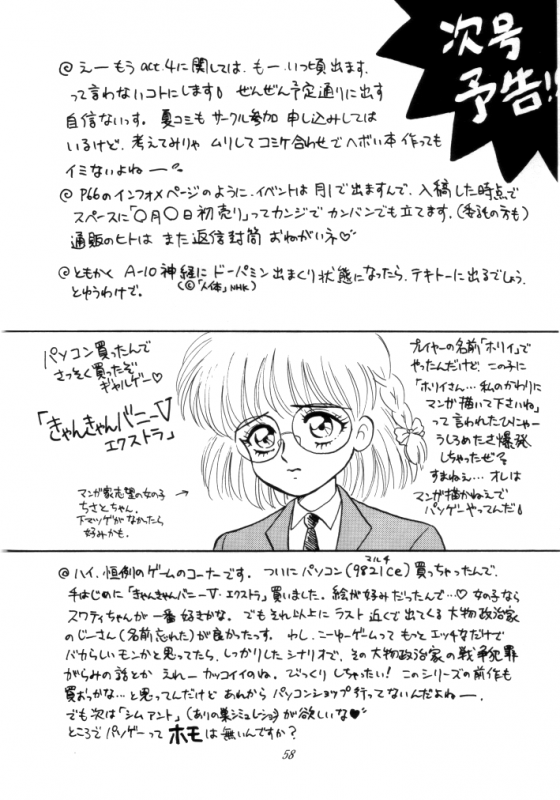 次号
予告!!
@ えー もう act.4に関しては、もー、いつ頃出ます、
って言わないコトにします。ぜんぜん予定通りに出す
自信ないっす。夏コミも サークル参加 申し込みしては
いるけど、考えてみりゃ ムリしてコミケ合わせで ヘボい本 作っても
イミないよねー。
@ P66のインフォメページのように、イベントは 月1で出ますんで、入稿した時点で
スペースに「〇月〇日初売り」ってカンジで カンバンでも立てます。(委託の方も)
通販のヒトは また返信封筒 おねがいネ♡
@ ともかく A-10神経に ドーパミン出まくり状態になったら、テキトーに出るでしょう。
とゆうわけで。 (©「人体」NHK)
パソコン買ったんで
さっそく買ったぞ
ギャルゲー♡
「きゃんきゃんバニーV
エクストラ」
マンガ家志望の女の子
ちさとちゃん。
下マツゲがなかったら
好みかも。
プレイヤーの名前「ホリイ」で
やったんだけど、この子に
「ホリイさん…私のかわりに
マンガ描いて下さいね」
って言われたひにゃー
うしろめたさ爆発
しちゃったぜ?
すまねえ…オレは
マンガ描かねえで
パソゲーやってんだ。
@ ハイ、恒例のゲームのコーナーです。ついにパソコン(9821Ce)買っちゃったんで、
マルチ
手はじめに「きゃんきゃんバニーV・エクストラ」買いました。絵が好みだったんで…♡ 女の子なら
スワティちゃんが一番好きかな。でもそれ以上に ラスト近くで出てくる 大物政治家
のじーさん(名前忘れた)が良かったっす。わし、こーゆーゲームって もっと エッチなだけで
バカらしいモンかと思ってたら、しっかりしたシナリオで、その大物政治家の戦争犯罪
がらみの話とか えれー カッコイイのね。びっくりしちゃったい! このシリーズの前作も
買おっかな…と思ってんだけど あれから パソコンショップ行ってないんだよねー。
でも次は「シムアント」(ありの巣シミュレーション)が欲しいな♥
ところでパソゲーって ホモは無いんですか?
58